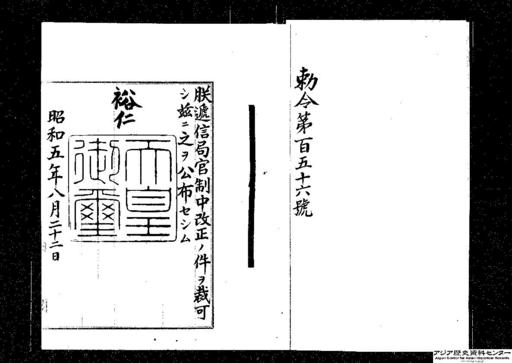 勅令第百五十六號
朕遞信局官制中改正ノ件ヲ裁可
シ茲ニ之ヲ公布セシム
裕仁
天皇
御璽
昭和五年八月二十二日
アジア歴史資料センター
Japan Center for Asian Historical Records